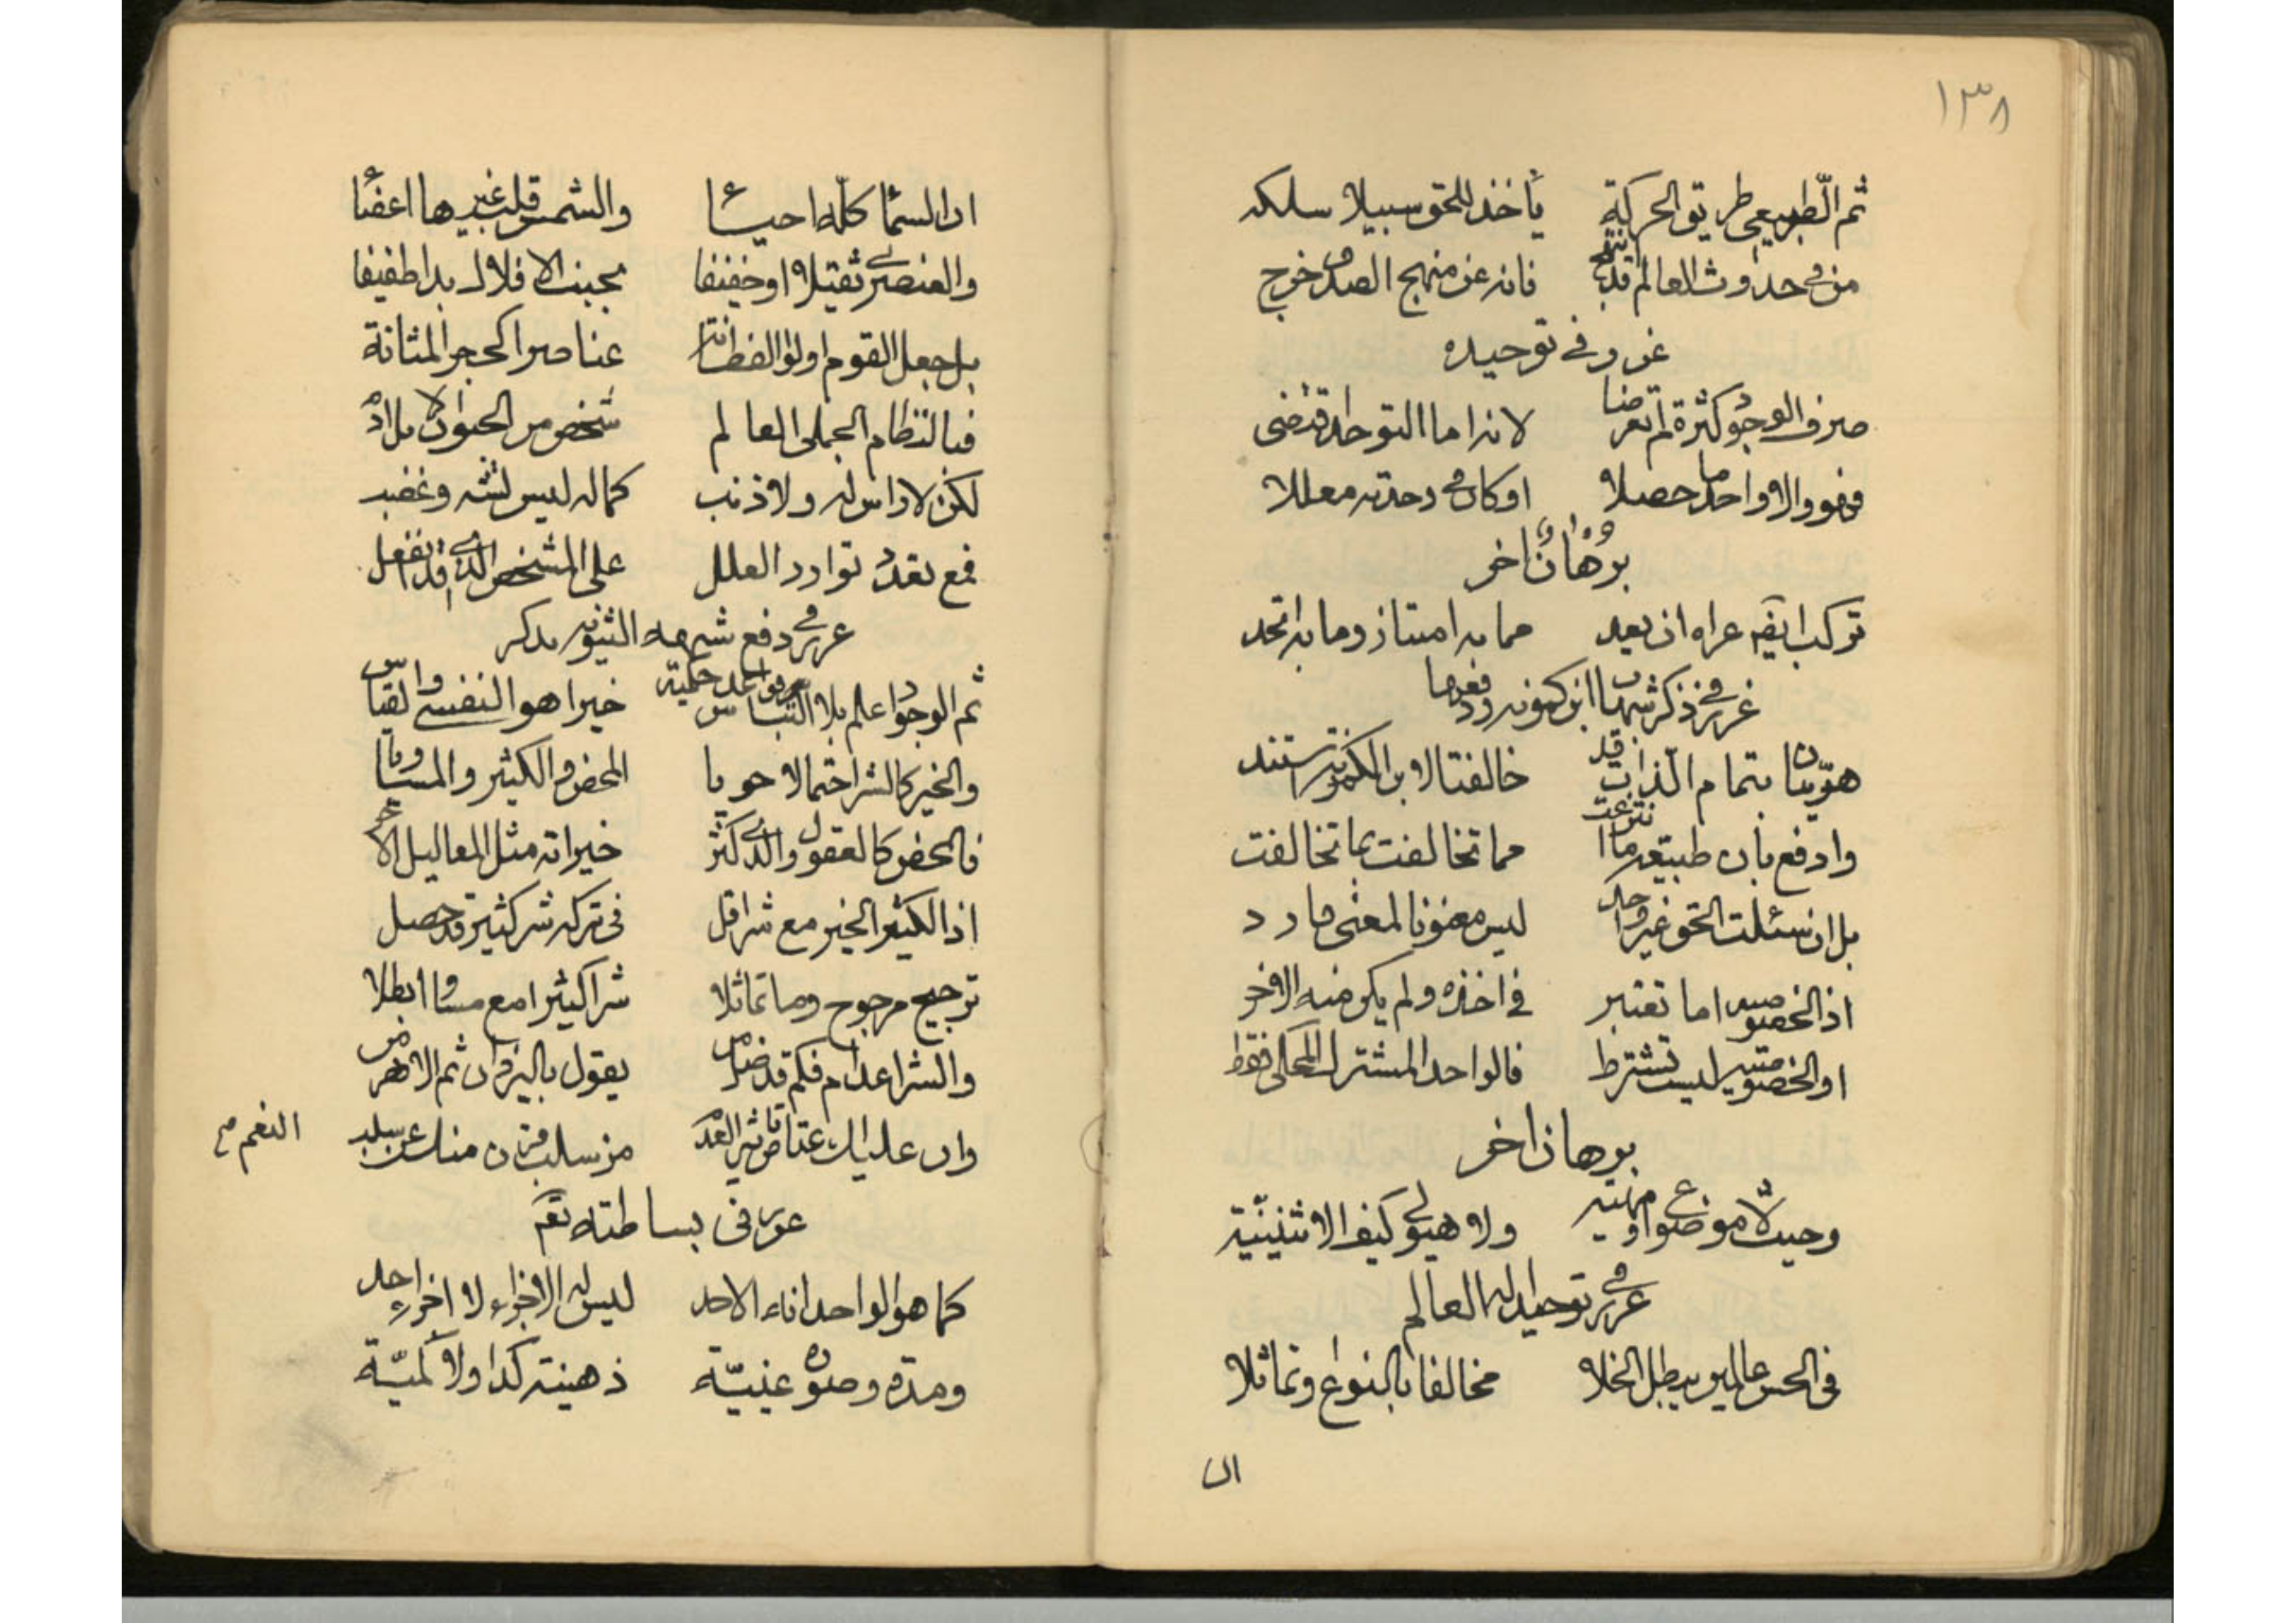 ١٣٨
ثم الطبيعي طريق الحركة يأخذ للحق سبيلا سلكه
من في حدوث العالم قد انتهج فانه عن منهج الصدق خرج
غرر في توحيده
صرف الوجود كثرة لم تعرضا لانه اما التوحد اقتضى
فهو والا واحد ما حصلا او كان في وحدته معللا
برهان اخر
تركب ايضا عراه ان يعد مما به امتاز وما به اتحد
غرر في ذكر شبهة ابن كمونة ودفعها
هويتان بتمام الذات قد خالفتا لابن الكمونة استند
وادفع بأن طبيعة ما انتزعت مما تخالفت بما تخالفت
بل ان سئلت الحق غير واحد ليس معنونا لمعنى فارد
اذ الخصوصية اما تعتبر في اخذه ولم يكن منه الاخر
او الخصوصية ليست تشترط فالواحد المشترك المحكي فقط
برهان اخر
وحيث لا موضوع او مهية ولا هيولى كيف الاثنينية
غرر في توحيد اله العالم
في الحس عالمين يبطل الخلا مخالفا بالنوع وتماثلا
ان
ان السماء كله احياء والشمس قلب غيرها اعضاء
والعنصري ثقيلا او خفيفا بجنب الافلاك بدا طفيفا
بل جعل القوم اولو الفطانة عناصرا كحجر المثانة
فبالنظام الجملي العالم شخص من الحيوان لا بل ادم
لكن لا راس له ولا ذنب كماله ليس تشه وغضب
فمع تعدد توارد العلل على المشخص الذي قد انفعل
غرر في دفع شبهة الثنوية بذكر قواعد حكمية
ثم الوجود اعلم بلا التباس خيرا هو النفسي والقياسي
والخير كالشر احتمالا حويا المحض والكثير والمساويا
فالمحض كالعقول والذي كثر خيراته مثل المعاليل الاخر
اذ الكثير الخير مع شر اقل في تركه شر كثير قد حصل
ترجيح مرجوح وما تماثلا شرا كثيرا مع مساو ابطلا
والشر اعدام فكم قد ضل من يقول باليزدان ثم الاهرمن
وان عليك اعتاص تاثير العدم من سلب قرن منك عن سلب
النعم صح
غرر في بساطته تعم
كما هو الواحد انه الاحد ليس له الاجزاء لا اجزاء احد
ومدة وصورة عينية ذهنية كذا ولا كمية